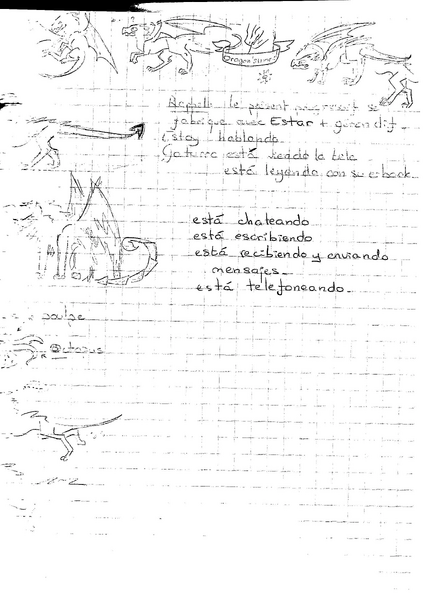 Dragon's time!
Rappel : le présent progressif se
fabrique avec Estar + gérondif.
Estoy hablando.
Gaturro está viendo la tele
está leyendo con su ebook.
está chateando
está escribiendo
está recibiendo y enviando
mensajes.
está telefoneando.
poulpe
Octopus